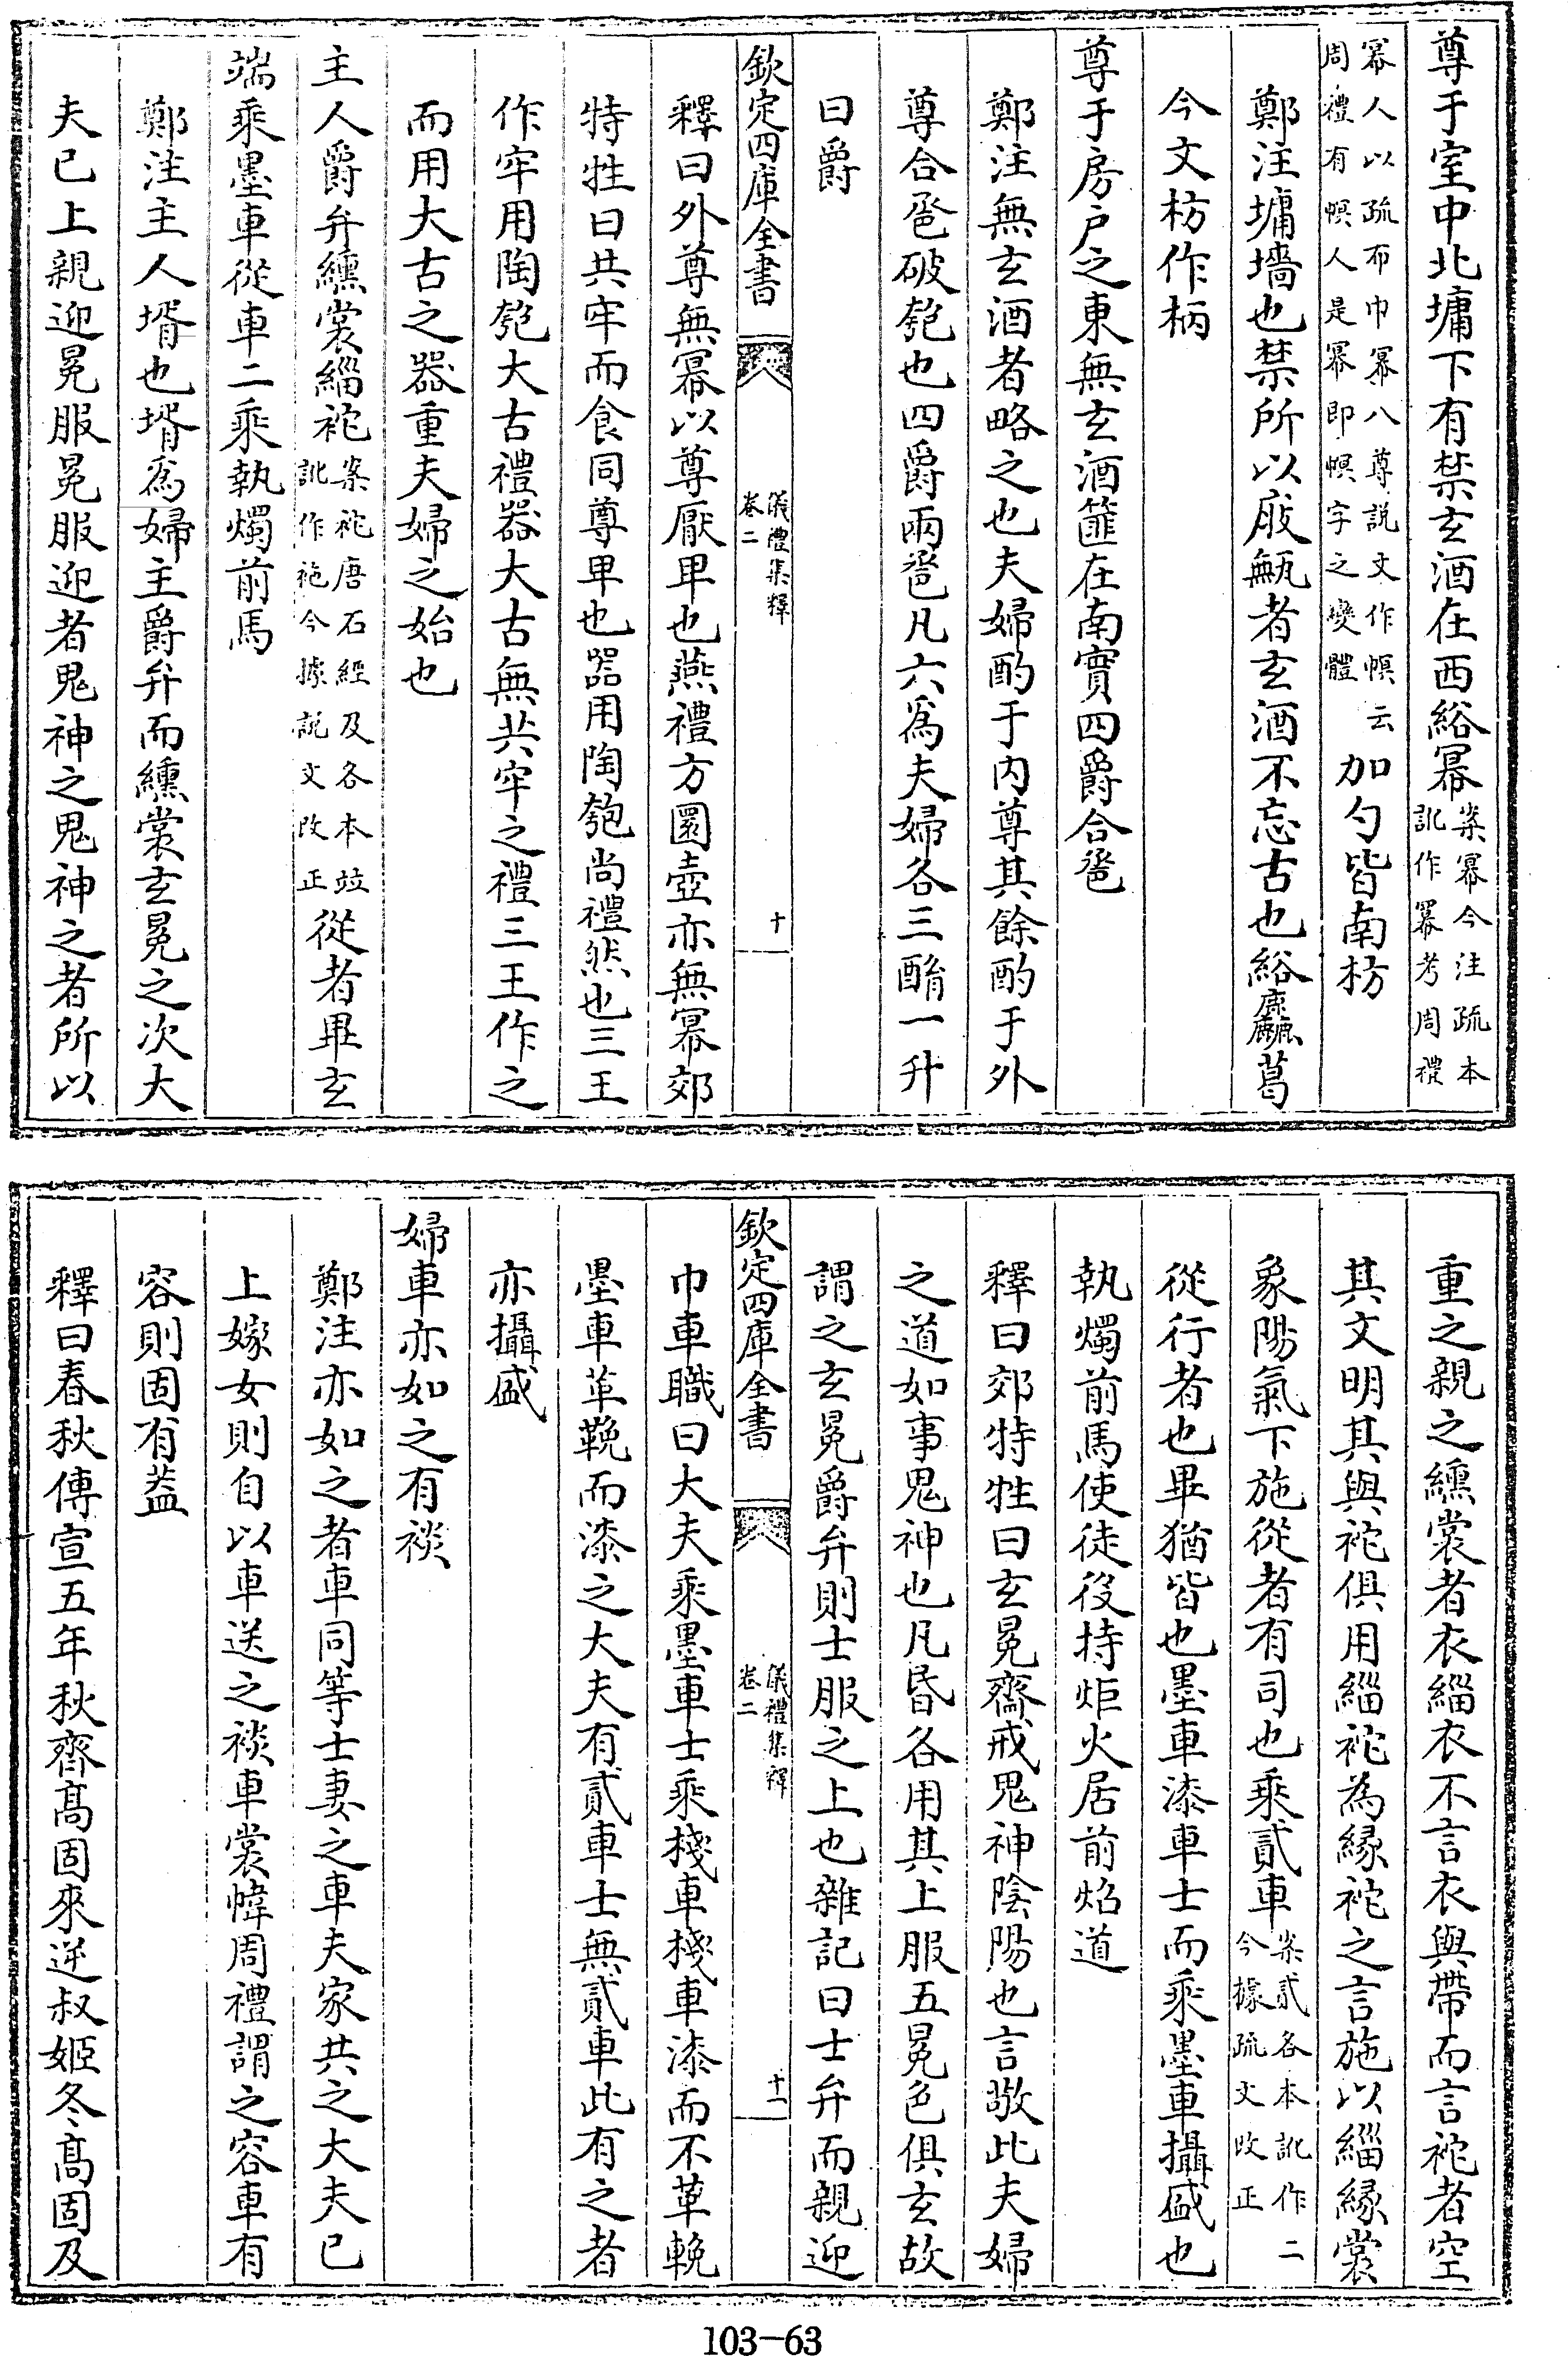 尊于室中北墉下有禁玄酒在西綌冪案冪今注疏本訛作羃考周禮
冪人以疏布巾冪八尊説文作幎云周禮有幎人是冪即幎字之變體加勺皆南枋
鄭注墉墻也禁所以庪甒者玄酒不忘古也綌麤葛
今文枋作柄
尊于房戶之東無玄酒篚在南實四爵合卺
鄭注無玄酒者略之也夫婦酌于内尊其餘酌于外
尊合卺破匏也四爵兩卺凡六爲夫婦各三酳一升
曰爵
欽定四庫全書 儀禮集釋 卷二 十
釋曰外尊無冪以尊厭卑也燕禮方圜壺亦無冪郊
特牲曰共牢而食同尊卑也器用陶匏尚禮然也三王
作牢用陶匏大古禮器大古無共牢之禮三王作之
而用大古之器重夫婦之始也
主人爵弁纁裳緇袘案袘唐石經及各本竝訛作袘今據説文改正從者畢玄
端乘墨車從車二乘執燭前馬
鄭注主人壻也壻爲婦主爵弁而纁裳玄冕之次大
夫已上親迎冕服冕服迎者鬼神之鬼神之者所以
重之親之纁裳者衣緇衣不言衣與帶而言袘者空
其文明其與袘俱用緇袘為緣袘之言施以緇緣裳
象陽氣下施從者有司也乘貳車案貳各本訛作二今據疏文改正
從行者也畢猶皆也墨車漆車士而乘墨車攝盛也
執燭前馬使徒役持炬火居前炤道
釋曰郊特牲曰玄冕齋戒鬼神陰陽也言敬此夫婦
之道如事鬼神也凡昏各用其上服五冕色俱玄故
謂之玄冕爵弁則士服之上也雜記曰士弁而親迎
欽定四庫全書 儀禮集釋 卷二 十一
巾車職曰大夫乘墨車士乘棧車棧車漆而不革輓
墨車革鞔而漆之大夫有貳車士無貳車此有之者
亦攝盛
婦車亦如之有裧
鄭注亦如之者車同等士妻之車夫家共之大夫已
上嫁女則自以車送之裧車裳幃周禮謂之容車有
容則固有蓋
釋曰春秋傳宣五年秋齊髙固來逆叔姬冬髙固及
103-63